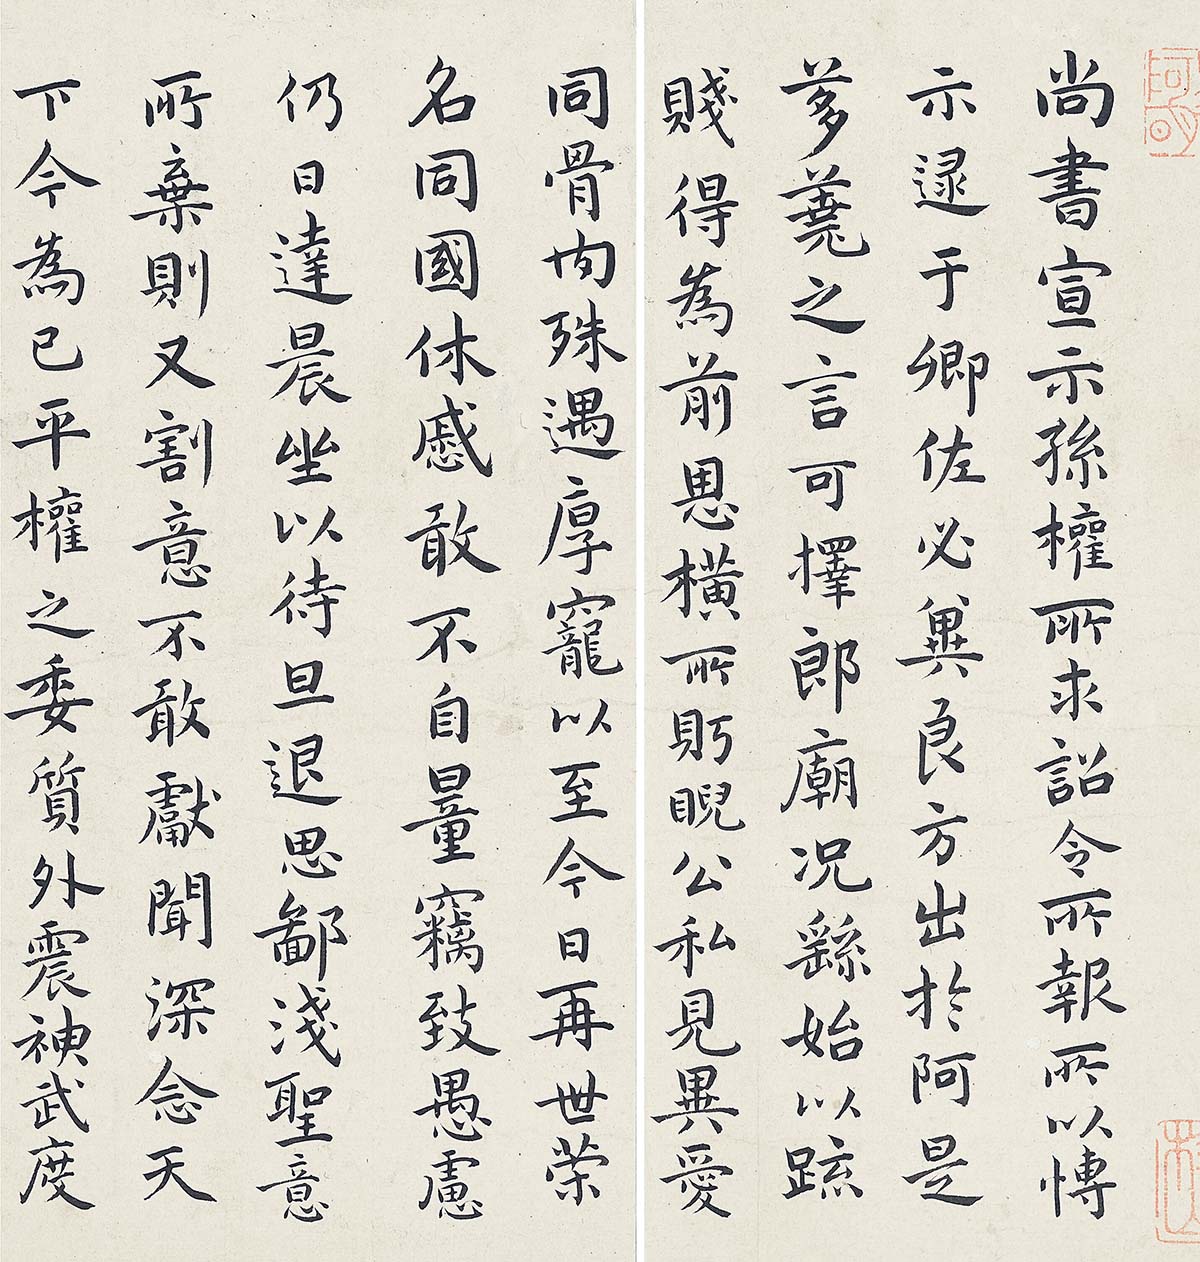 尚書宣示孫權所求詔令所報所以博
示逮于卿佐必冀良方出於阿是
芻蕘之言可擇郎廟況繇始以疏
賤得為前恩橫所眄睨公私見異愛
同骨肉殊遇厚寵以至今日再世榮
名同國休慼敢不自量竊致愚慮
仍日達晨坐以待旦退思鄙淺聖意
所棄則又割意不敢獻聞深念天
下今為已平權之委質外震神武度